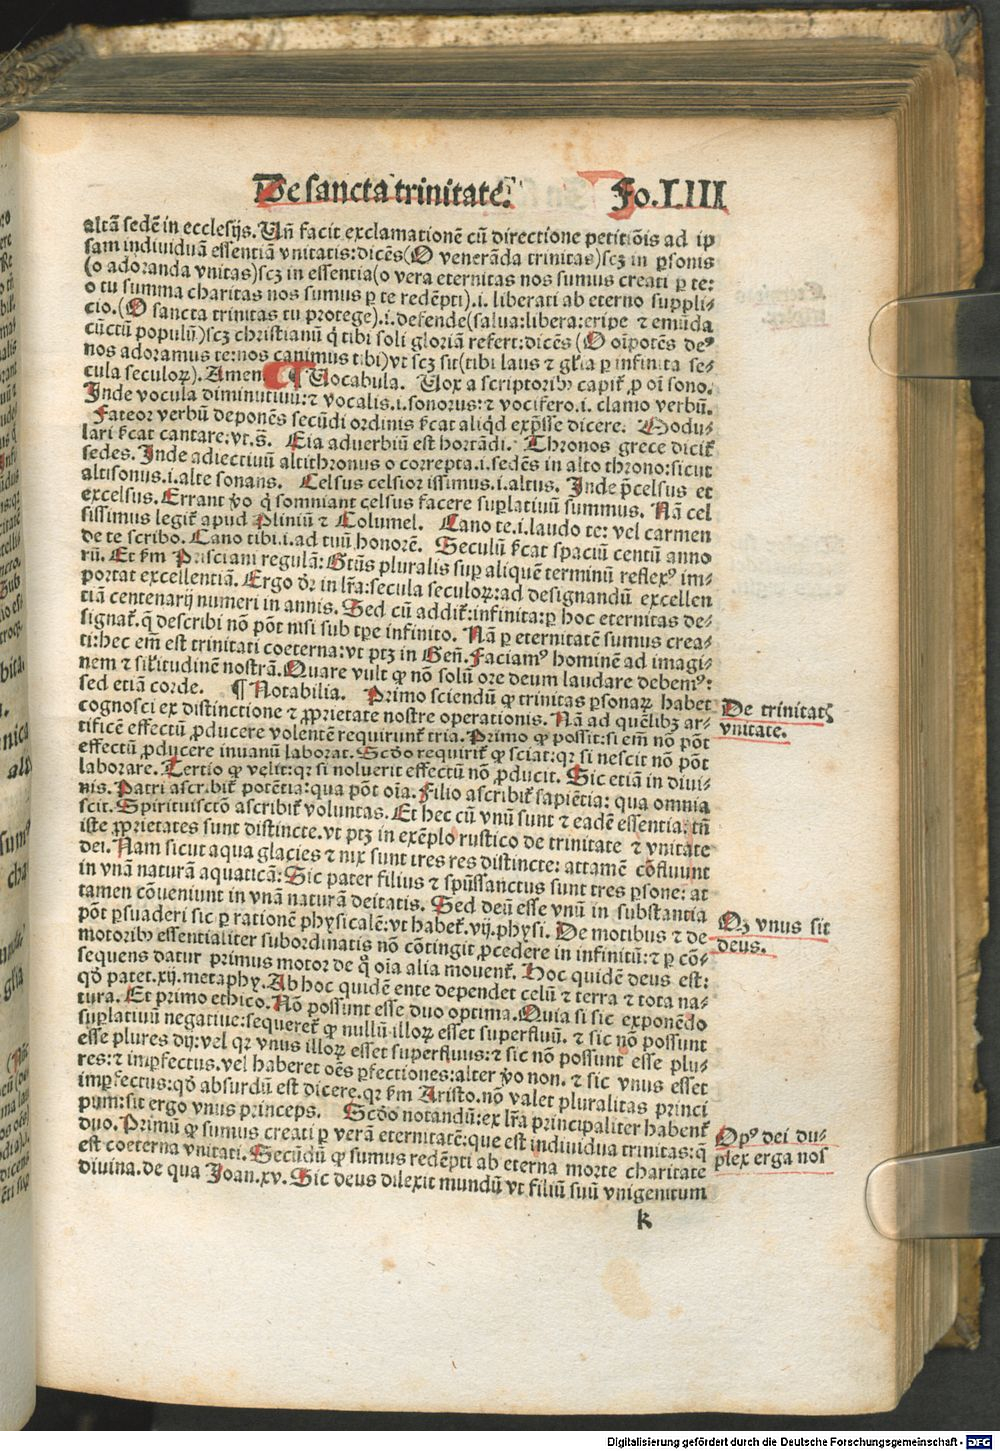 De sancta trinitate.
Fo.LIII
altã sedẽ in ecclesijs. Uñ facit exclamationẽ cũ directione petitiõis ad ip
sam indiuiduã essentiã vnitatis: dicẽs (O venerãda trinitas) scꝫ in ꝑsonis
(o adoranda vnitas) scꝫ in essentia (o vera eternitas nos sumus creati ꝑ te:
o tu summa charitas nos sumus ꝑ te redẽpti) .i. liberati ab eterno suppli⸗
cio. (O sancta trinitas tu protege) .i. defende (salua: libera: eripe ⁊ emũda
cũctũ populũ) scꝫ christianũ q̃ tibi soli gloriãm refert: dicẽs (O oĩpotẽs deꝰ
nos adoramus te: nos canimus tibi) vt scꝫ sit (tibi laus ⁊ gl̃ia ꝑ infinita se⸗
cula seculoꝝ). Amen ¶ Uocabula. Uox a scriptoribꝰ capit̃ ꝓ oĩ sono.
Inde vocula diminutiuũ: ⁊ vocalis .i. sonorus: ⁊ vocifero .i. clamo verbũ.
Fateor verbũ deponẽs secũdi ordinis ẜcat aliq̃d exp̃sse dicere. Modu⸗
lari ẜcat cantare: vt .s̃. Eia aduerbiũ est hortãdi. Thronos grece dicit̃
sedes. Inde adiectiuũ altithronus o correpta .i. sedẽs in alto throno: sicut
altisonus .i. alte sonans. Celsus celsior issimus .i. altus. Inde p̃celsus et
excelsus. Errant ꝟo q̃ somniant celsus facere suꝑlatiuũ summus. Nã cel
sissimus legit̃ apud Pliniũ ⁊ Columel. Cano te .i. laudo te: vel carmen
de te scribo. Cano tibi .i. ad tuũ honorẽ. Seculũ ẜcat spaciũ centũ anno
rũ. Et ẜm Prisciani regulã: Gtũs pluralis suꝑ aliquẽ terminũ reflexꝰ im⸗
portat excellentiã. Ergo dr̃ in lr̃a: secula seculoꝝ: ad designandũ excellen
tiã centenarij numeri in annis. Sed cũ addit̃: infinita: ꝑ hoc eternitas de⸗
signat̃. q̃ describi nõ põt nisi sub tꝑe infinito. Nã ꝑ eternitatẽ sumus crea⸗
ti: hec em̃ est trinitati coeterna: vt ptꝫ in Geñ. Faciamꝰ hominẽ ad imagi⸗
nem ⁊ sil̃itudinẽ nostrã. Quare vult ꝙ nõ solũ ore deum laudare debemꝰ:
sed etiã corde. ¶ Notabilia. Primo sciendũ ꝙ trinitas ꝑsonaꝝ habet
cognosci ex distinctione ⁊ ꝓprietate nostre operationis. Nã ad quẽlibꝫ ar⸗
tificẽ effectũ ꝓducere volentẽ requirunt̃ tria. Primo ꝙ possit: si em̃ nõ põt
effectũ ꝓducere inuanũ laborat. Scd̃o requirit̃ ꝙ sciat: qꝛ si nescit nõ põt
laborare. Tertio ꝙ velit: qꝛ si noluerit effectũ nõ ꝓducit. Sic etiã in diui⸗
nis. Patri ascribit̃ potẽtia: qua põt oĩa. Filio ascribit̃ sapiẽtia: qua omnia
scit. Spirituisctõ ascribit̃ voluntas. Et hec cũ vnũ sunt ⁊ eadẽ essentia: tñ
iste ꝓprietates sunt distincte. vt ptꝫ in exẽplo rustico de trinitate ⁊ vnitate
dei. Nam sicut aqua glacies ⁊ nix sunt tres res distincte: attamẽ cõfluunt
in vnã naturã aquaticã: Sic pater filius ⁊ spũssanctus sunt tres ꝑsone: at
tamen cõueniunt in vnã naturã deitatis. Sed deũ esse vnũ in substantia
põt ꝑsuaderi sic ꝑ rationẽ physicalẽ: vt habet̃ .vij. physi. De motibus ⁊ de
motoribꝰ essentialiter subordinatis nõ cõtingit ꝓcedere in infinitũ: ⁊ ꝑ cõ⸗
sequens datur primus motor de q̃ oĩa alia mouent̃. Hoc quidẽ deus est:
qd̃ patet .xij. metaphy. Ab hoc quidẽ ente dependet celũ ⁊ terra ⁊ tota na⸗
tura. Et primo ethico. Nõ possunt esse duo optima. Quia si sic exponẽdo
suꝑlatiuũ negatiue: sequeret̃ ꝙ nullũ illoꝝ esset superfluũ. ⁊ sic nõ possunt
esse plures dij: vel qꝛ vnus illoꝝ esset superfluus: ⁊ sic nõ possunt esse plu⸗
res: ⁊ imperfectus. vel haberet oẽs ꝑfectiones: alter ꝟo non. ⁊ sic vnus esset
imꝑfectus: qd̃ absurdũ est dicere. qꝛ ẜm Aristo. nõ valet pluralitas princi
pum: sit ergo vnus princeps. Scd̃o notandũ: ex lr̃a principaliter habent̃
duo. Primũ ꝙ sumus creati ꝑ verã eternitatẽ: que est indiuidua trinitas: q̃
est coeterna vnitati. Secũdũ ꝙ sumus redẽpti ab eterna morte charitate
diuina. de qua Joan. xv. Sic deus dilexit mundũ vt filiũ suũ vnigenitum
k
De trinitatꝭ
vnitate.
Qꝫ vnus sit
deus.
Opꝰ dei du⸗
plex erga nos
Digitalisierung gefördert durch die Deutsche Forschungsgemeinschaft - DFG